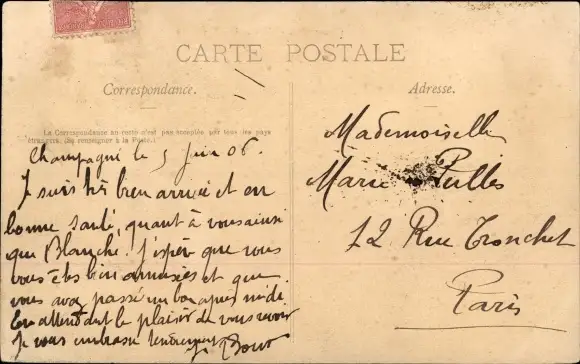 CARTE POSTALE
Correspondance.
Adresse.
La Correspondance au recto n'est pas acceptée par tous les pays
étrangers. (Se renseigner à la Poste.)
Champagné le 5 juin 06.
Je suis très bien arrivée et en
bonne santé, quant à vous ainsi
que Blanche. J'espère que vous
vous êtes bien amusées et que
vous avez passé un bon après midi.
En attendant le plaisir de vous revoir
Je vous embrasse tendrement
Mademoiselle
Marie
12 Rue Tronchet
Paris